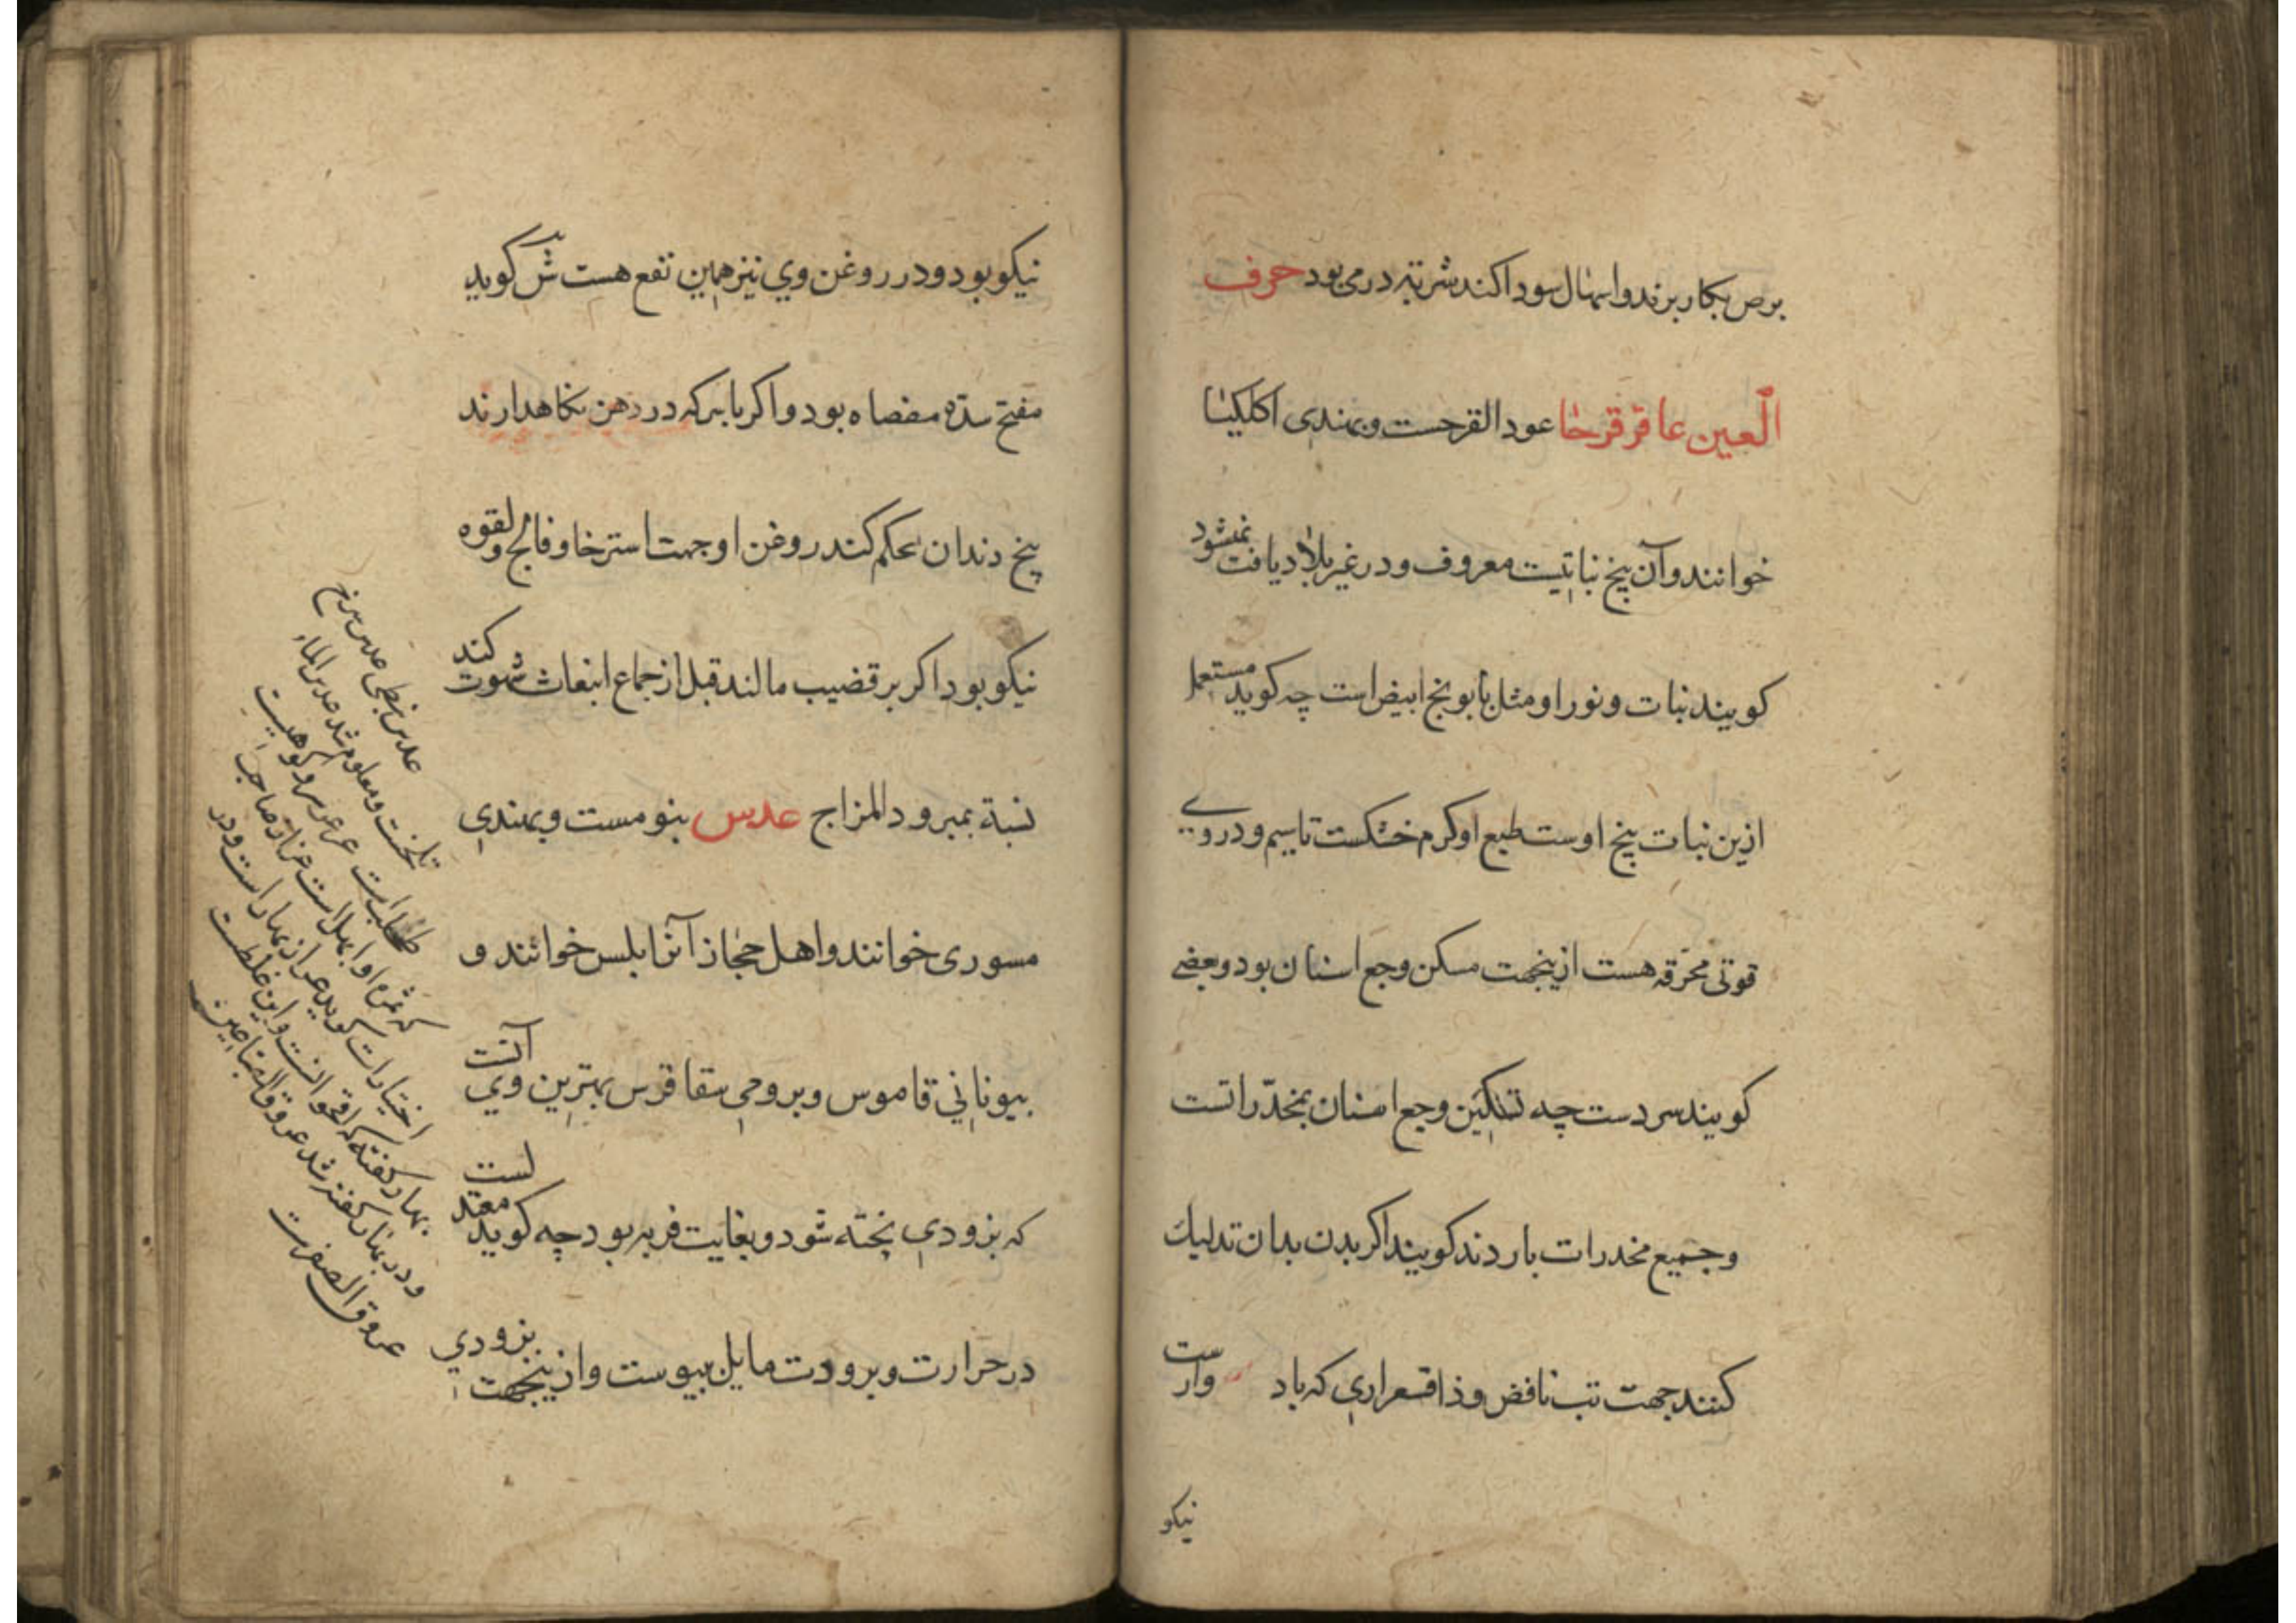 برص بکار برند و اسهال سودا کند شربته درمی بود حرف
العین عاقرقرحا عود القرحست و بهندی اکلکیتا
خوانند و آن بیخ نباتیست معروف و در غیر بلاد یافت نمیشود
کویند نبات و نور او مثل بابونج ابیض است چه کوید مستعمل
ازین نبات بیخ اوست طبع او کرم خشکست تا سیم و در وی
قوتی محرقه هست ازینجهت مسکن وجع اسنان بود و بعضی
کویند سردست چه تسکین وجع اسنان بمخدراتست
و جمیع مخدرات باردند کویند اکر بدن بدان تدلیک
کنند جهت تب نافض و ذا قشعراری که باد وارست
نیکو
نیکو بود و در روغن وی نیز همین نفع هست ش کوید
مفتح سده مصفاه بود و اکر با سرکه در دهن نکاهدارند
بیخ دندان محکم کند روغن او جهت استرخا و فالج و لقوه
نیکو بود اکر بر قضیب مالند قبل از جماع انبعاث شهوت کند
نسبة بمبرود المزاج عدس بنومست و بهندی
مسوری خوانند و اهل حجاز آنرا بلس خوانند و
بیونانی قاموس و برومی سقاقرس بهترین وی آنست
که بزودی پخته شود و بغایت فربه بود چه کوید معتدلست
در حرارت و برودت مایل بیبوست و ازینجهت بزودی
عدس نبطی عدس برخ
تلخست و معلوم شد عدس الماء
طحلب است عرعر سرو کوهیست
که ثمره او ابهل است عرار صاحب
اختیارات کوید عرار بهار است و در
بهار کفته که اقحوانست و این غلطست
و در بهار کفته شد عروق الصباغین
عروق الصفرست